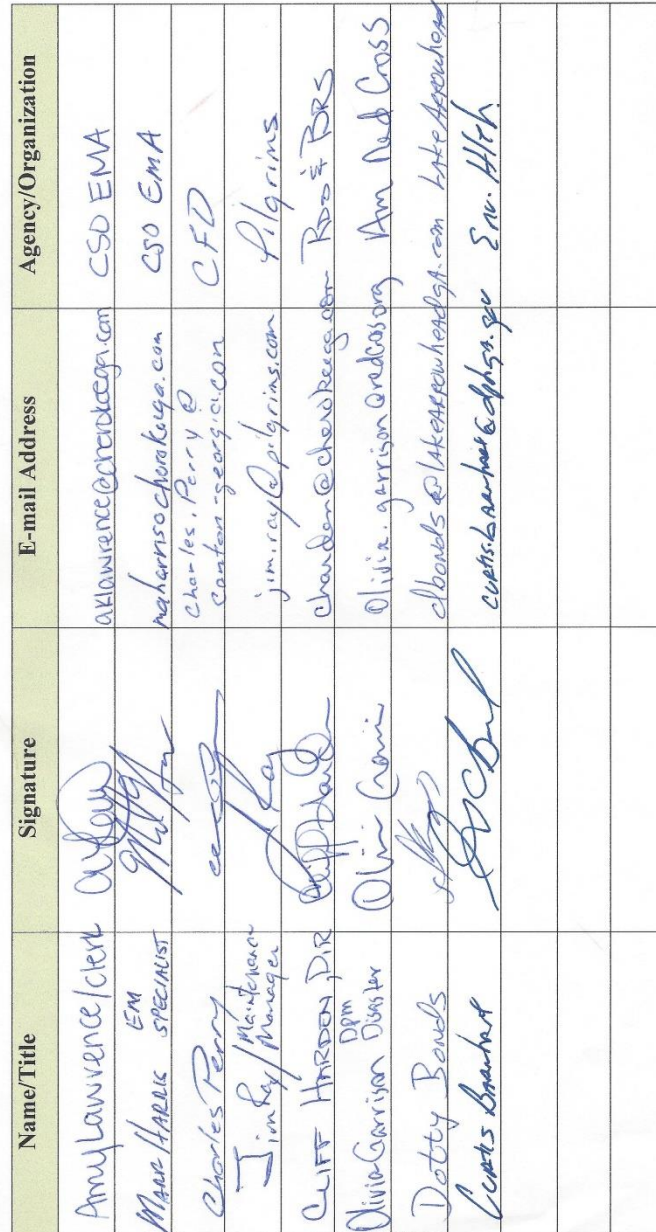 Name/Title Signature E-mail Address Agency/Organization
Amy Lawrence/clerk aklawrence@cherokeega.com CSO EMA
Mark Harris EM SPECIALIST maharris@cherokeega.com CSO EMA
Charles Perry Charles.Perry@
canton-georgia.com CFD
Jim Ray/Maintenance Manager Jim Ray jim.ray@pilgrims.com Pilgrims
CLIFF HARDEN, DIR Cliff Harden charden@cherokeega.com RDS & BRS
Olivia Garrison DPM Disaster olivia.garrison@redcross.org Am Red Cross
Dotty Bonds dbonds@LAKEARROWHEADGA.com LAKE ARROWHEAD
Curtis Barnhart curtis.barnhart@dph.ga.gov Env. Hlth